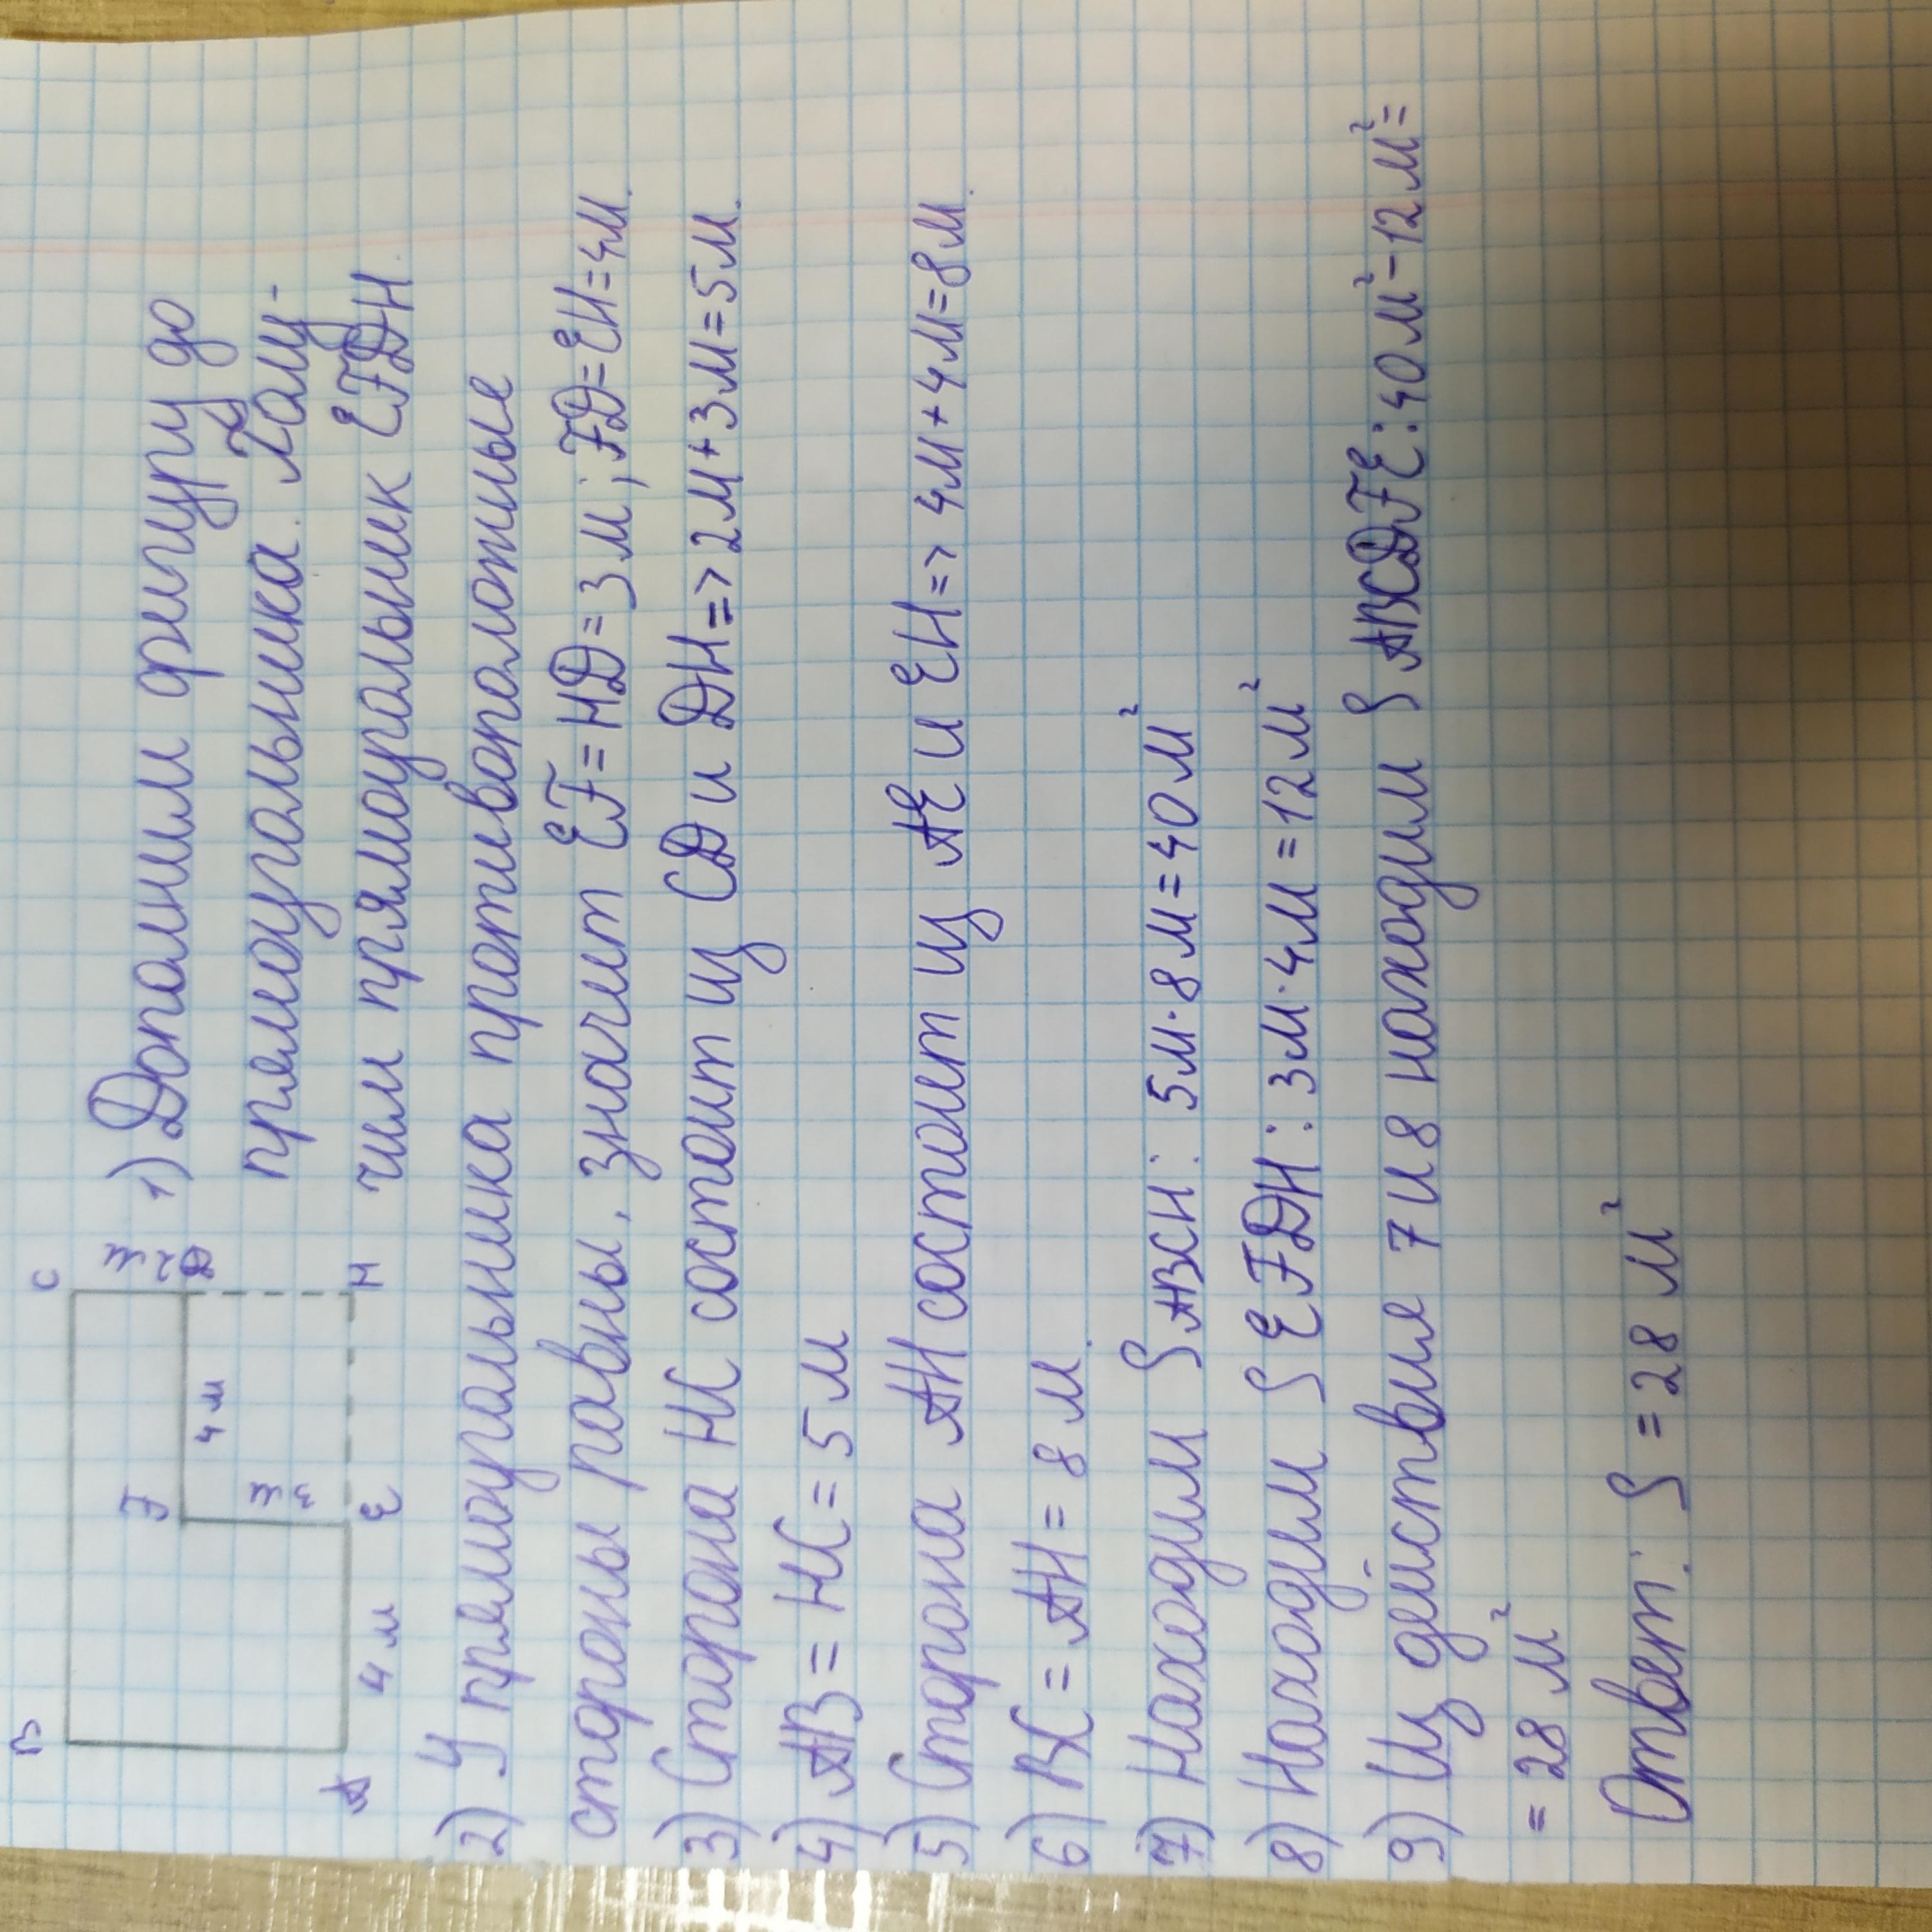 B C
2 м
1) Дополним фигуру до
F D
прямоугольника. Полу-
3 м 4 м
чим прямоугольник EFDH.
A 4 м E H
2) У прямоугольника противоположные
стороны равны, значит EF=HD=3м; FD=EH=4м.
3) Сторона HC состоит из CD и DH=> 2м+3м=5м.
4) AB=HC=5м
5) Сторона AH состоит из AE и EH=> 4м+4м=8м.
6) BC=AH=8м.
7) Находим S ABCH: 5м·8м=40м²
8) Находим S EFDH: 3м·4м=12м²
9) Из действие 7 и 8 находим S ABCDFE: 40м²-12м²=
=28м²
Ответ: S=28м²